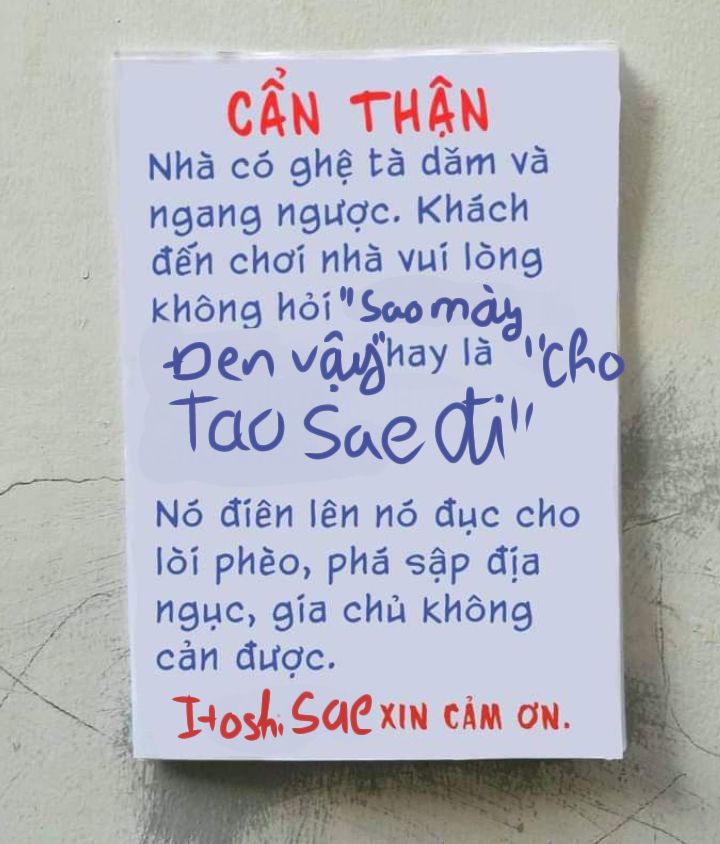 CẨN THẬN
Nhà có ghệ tà dăm và
ngang ngược. Khách
đến chơi nhà vui lòng
không hỏi "Sao mày
Đen vậy" hay là "Cho
Tao Sae đi"
Nó điên lên nó đục cho
lòi phèo, phá sập địa
ngục, gia chủ không
cản được.
Itoshi Sae XIN CẢM ƠN.